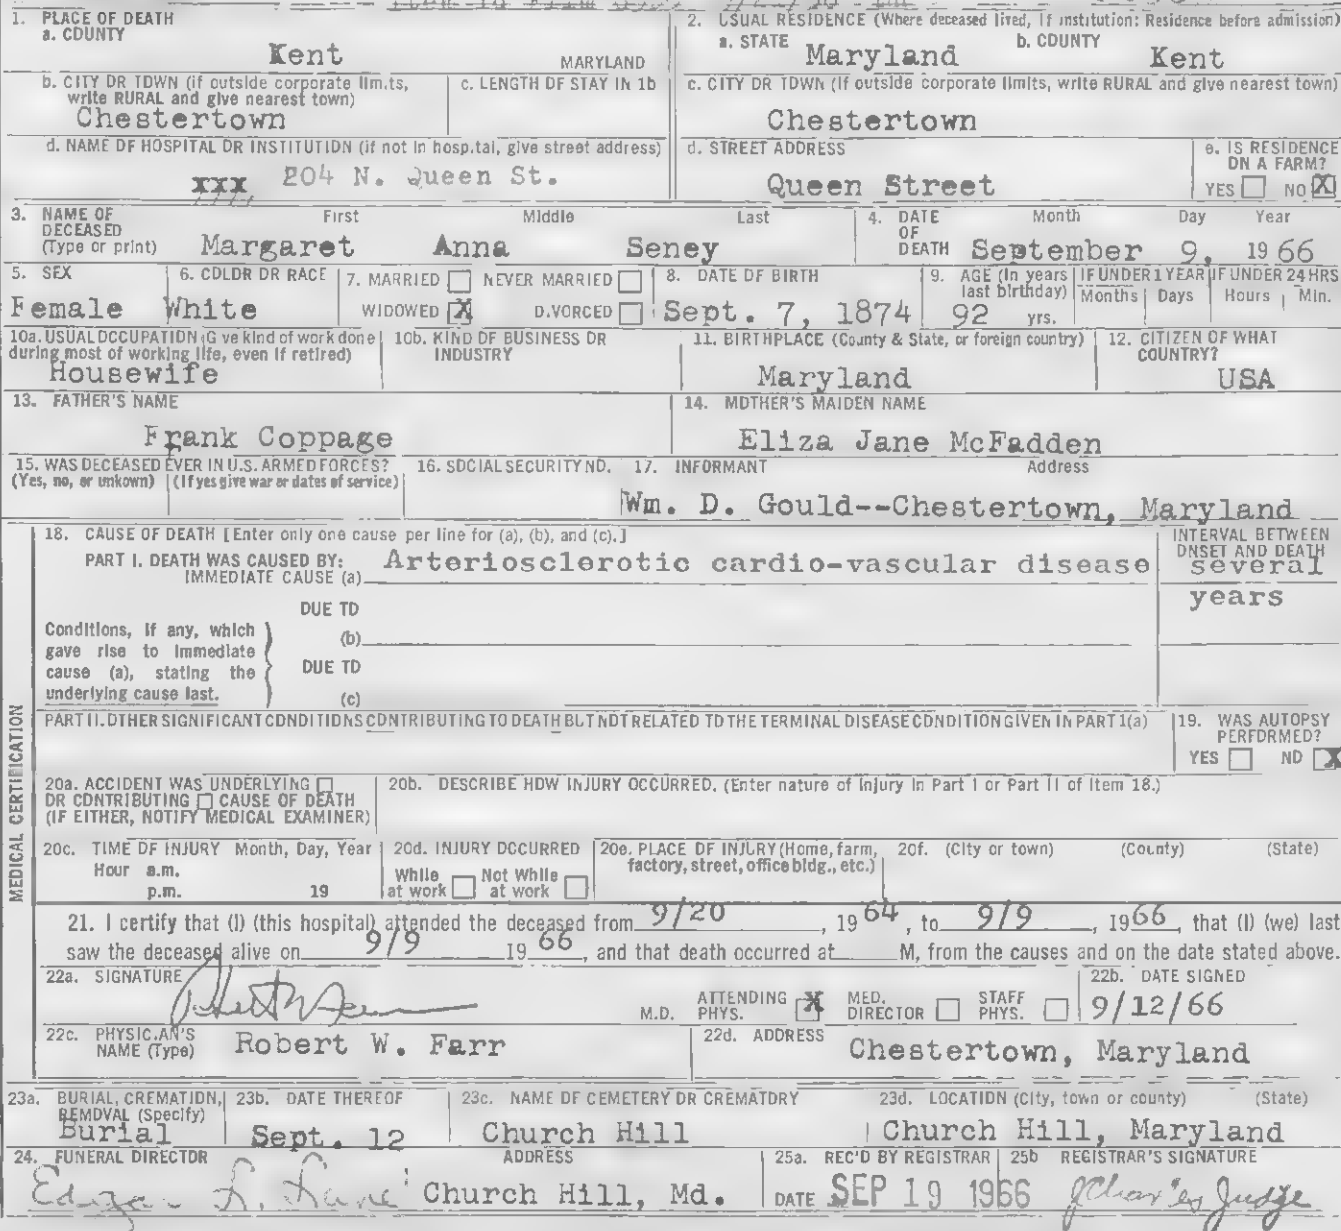 1. PLACE OF DEATH
a. COUNTY
Kent
MARYLAND
b. CITY OR TOWN (if outside corporate limits,
write RURAL and give nearest town)
Chestertown
c. LENGTH OF STAY IN 1b
d. NAME OF HOSPITAL OR INSTITUTION (if not in hospital, give street address)
xxx 204 N. Queen St.
2. USUAL RESIDENCE (Where deceased lived, If institution: Residence before admission)
a. STATE
Maryland
b. COUNTY
Kent
c. CITY OR TOWN (If outside corporate limits, write RURAL and give nearest town)
Chestertown
d. STREET ADDRESS
Queen Street
e. IS RESIDENCE
ON A FARM?
YES NO X
3. NAME OF
DECEASED
(Type or print)
First Middle Last
Margaret Anna Seney
4. DATE
OF
DEATH
Month Day Year
September 9, 19 66
5. SEX
Female
6. COLOR OR RACE
White
7. MARRIED NEVER MARRIED
WIDOWED X DIVORCED
8. DATE OF BIRTH
Sept. 7, 1874
9. AGE (In years
last birthday)
92 yrs.
IF UNDER 1 YEAR
Months Days
IF UNDER 24 HRS
Hours Min.
10a. USUAL OCCUPATION (Give kind of work done
during most of working life, even if retired)
Housewife
10b. KIND OF BUSINESS OR
INDUSTRY
11. BIRTHPLACE (County & State, or foreign country)
Maryland
12. CITIZEN OF WHAT
COUNTRY?
USA
13. FATHER'S NAME
Frank Coppage
14. MOTHER'S MAIDEN NAME
Eliza Jane McFadden
15. WAS DECEASED EVER IN U.S. ARMED FORCES?
(Yes, no, or unkown) (If yes give war or dates of service)
16. SOCIAL SECURITY NO.
17. INFORMANT Address
Wm. D. Gould--Chestertown, Maryland
MEDICAL CERTIFICATION
18. CAUSE OF DEATH [Enter only one cause per line for (a), (b), and (c).]
PART I. DEATH WAS CAUSED BY:
IMMEDIATE CAUSE (a)
Arteriosclerotic cardio-vascular disease
INTERVAL BETWEEN
ONSET AND DEATH
several
years
Conditions, if any, which
gave rise to immediate
cause (a), stating the
underlying cause last.
DUE TO
(b)
DUE TO
(c)
PART II. OTHER SIGNIFICANT CONDITIONS CONTRIBUTING TO DEATH BUT NOT RELATED TO THE TERMINAL DISEASE CONDITION GIVEN IN PART 1(a)
19. WAS AUTOPSY
PERFORMED?
YES NO X
20a. ACCIDENT WAS UNDERLYING
OR CONTRIBUTING CAUSE OF DEATH
(IF EITHER, NOTIFY MEDICAL EXAMINER)
20b. DESCRIBE HOW INJURY OCCURRED. (Enter nature of injury in Part I or Part II of Item 18.)
20c. TIME OF INJURY Month, Day, Year
Hour a.m.
p.m. 19
20d. INJURY OCCURRED
While at work Not While at work
20e. PLACE OF INJURY (Home, farm,
factory, street, office bldg., etc.)
20f. (City or town) (County) (State)
21. I certify that (I) (this hospital) attended the deceased from 9/20, 1964, to 9/9, 1966, that (I) (we) last
saw the deceased alive on 9/9 1966, and that death occurred at M, from the causes and on the date stated above.
22a. SIGNATURE
M.D. ATTENDING PHYS. X MED. DIRECTOR STAFF PHYS.
22b. DATE SIGNED
9/12/66
22c. PHYSICIAN'S
NAME (Type)
Robert W. Farr
22d. ADDRESS
Chestertown, Maryland
23a. BURIAL, CREMATION,
REMOVAL (Specify)
Burial
23b. DATE THEREOF
Sept. 12
23c. NAME OF CEMETERY OR CREMATORY
Church Hill
23d. LOCATION (City, town or county) (State)
Church Hill, Maryland
24. FUNERAL DIRECTOR ADDRESS
Edgar L. Lane Church Hill, Md.
25a. REC'D BY REGISTRAR
DATE SEP 19 1966
25b REGISTRAR'S SIGNATURE
J Charles Judge